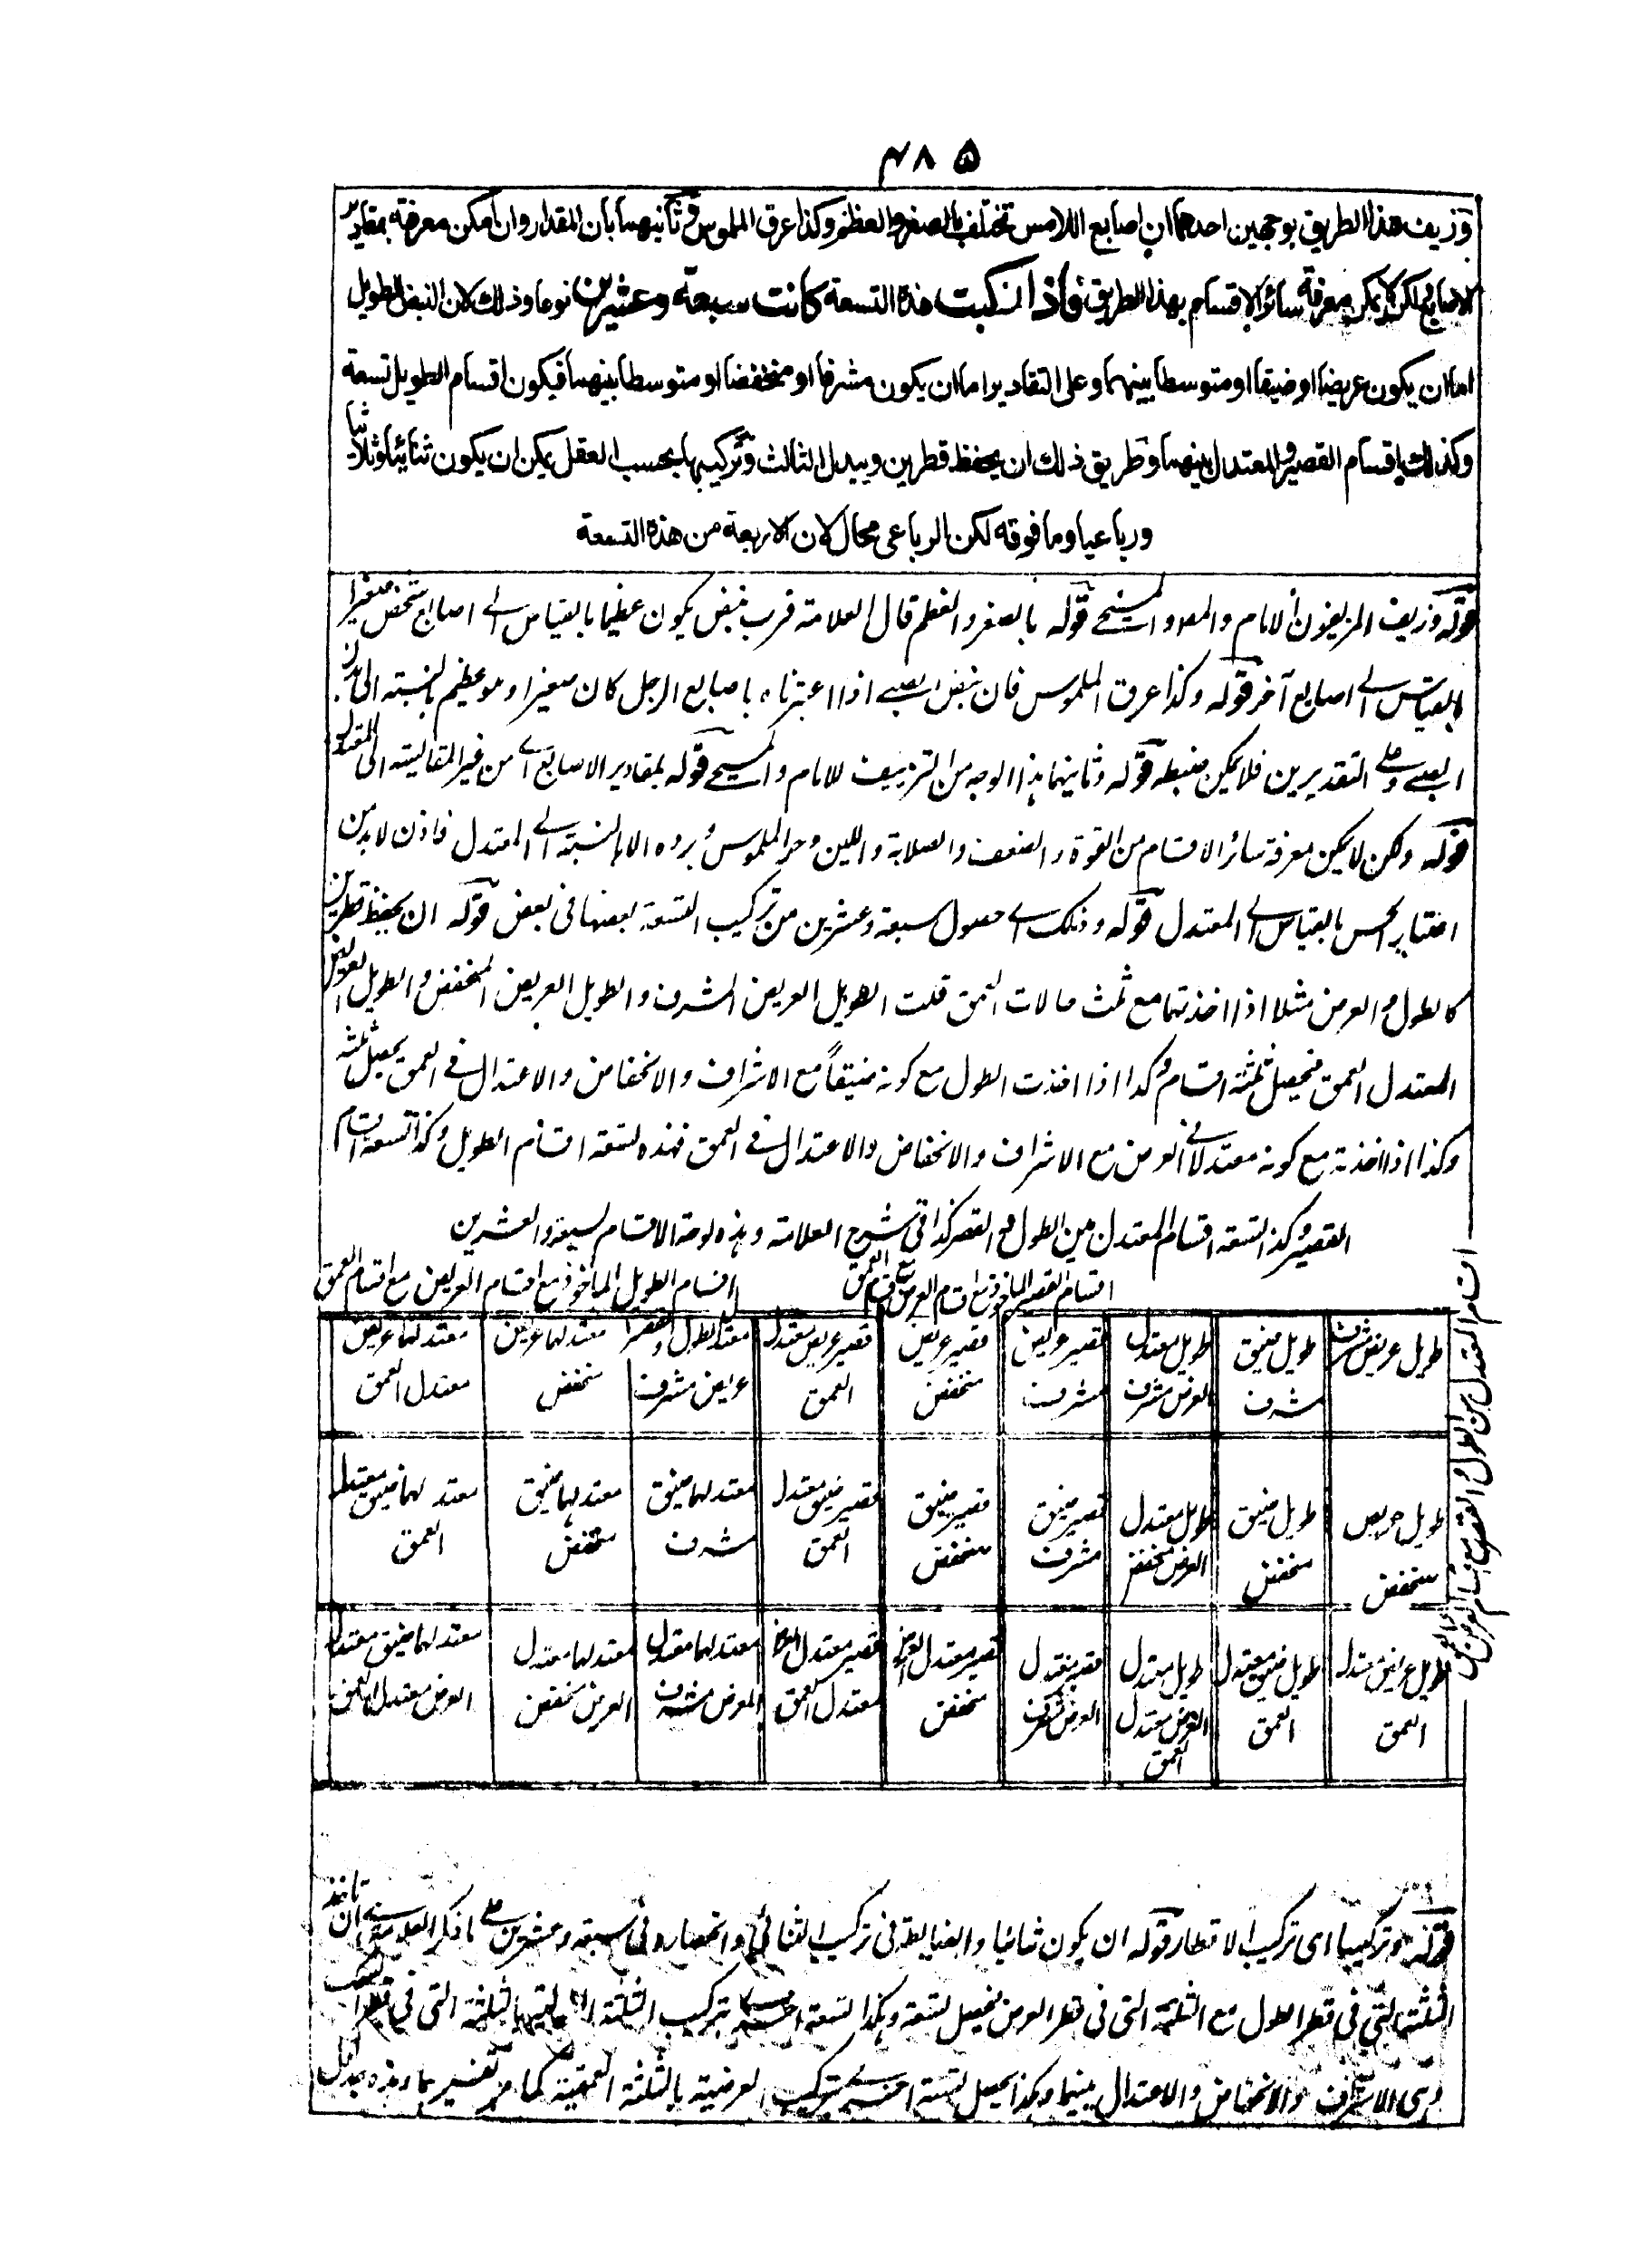 ۴۸۵
وزيف هذا الطريق بوجهين احدهما ان اصابع اللامس تختلف بالصغر والعظم وكذا عرق الملموس وثانيهما بأن المقدار وان امكن معرفته بمقادير
الاصابع لكن لا يمكن معرفة سائر الاقسام بهذا الطريق فاذا تركبت هذه التسعة كانت سبعة وعشرين نوعا وذلك لان النبض الطويل
اما ان يكون عريضا او ضيقا او متوسطا بينهما وعلى التقادير اما ان يكون مشرفا او منخفضا او متوسطا بينهما فيكون اقسام الطويل تسعة
وكذلك اقسام القصير والمعتدل بينهما وطريق ذلك ان يحفظ قطرين ويبدل الثالث وتركيبها بحسب العقل يمكن ان يكون ثنائيا وثلاثيا
ورباعيا وما فوقه لكن الرباعى محال لان الاربعة من هذه التسعة
قوله وزيف المزيفون الامام والمسيحي قوله بالصغر والعظم قال العلامة فرب نبض يكون عظيما بالقياس الى اصابع شخص صغيرا
بالقياس الى اصابع آخر قوله وكذا عرق الملموس فان نبض الصبي اذا اعتبرناه باصابع الرجل كان صغيرا وهو عظيم بالنسبة الى بدن
الصبي وعلى التقديرين فلا يمكن ضبطه قوله وثانيهما هذا الوجه من التزييف للامام والمسيحي قوله بمقادير الاصابع اى من غير المقايسة الى المعتدل
قوله ولكن لا يمكن معرفة سائر الاقسام من القوة والضعف والصلابة واللين وحر الملموس وبرده الا بالنسبة الى المعتدل فاذن لا بد من
اختبار الجس بالقياس الى المعتدل قوله وذلك اى حصول سبعة وعشرين من تركيب التسعة بعضها فى بعض قوله ان يحفظ قطرين
كالطول والعرض مثلا اذا اخذتهما مع ثلث حالات العمق قلت الطويل العريض المشرف والطويل العريض المنخفض والطويل العريض
المعتدل العمق فتحصل ثلثة اقسام وكذا اذا اخذت الطول مع كونه ضيقاً مع الاشراف والانخفاض والاعتدال في العمق يحصل ثلثة
وكذا اذا اخذته مع كونه معتدلا فى العرض مع الاشراف والانخفاض والاعتدال في العمق فهذه تسعة اقسام الطويل وكذا تسعة اقسام
القصير وكذا تسعة اقسام المعتدل بين الطول والقصر كذا فى شرح العلامة وهذه لوحة الاقسام لسبعة والعشرين
اقسام القصير الماخوذ مع اقسام العريض مع اقسام العمق
اقسام الطويل الماخوذ مع اقسام العريض مع اقسام العمق
اقسام المعتدل من الطول والقصر مع اقسام العرض والعمق
طويل عريض مشرف
طويل ضيق مشرف
طويل معتدل العرض مشرف
قصير عريض مشرف
قصير عريض منخفض
قصير عريض معتدل العمق
معتدل الطول والقصر عريض مشرف
معتدلهما عريض منخفض
معتدلهما عريض معتدل العمق
طويل عريض منخفض
طويل ضيق منخفض
طويل معتدل العرض منخفض
قصير ضيق مشرف
قصير ضيق منخفض
قصير ضيق معتدل العمق
معتدلهما ضيق مشرف
معتدلهما ضيق منخفض
معتدلهما ضيق معتدل العمق
طويل عريض معتدل العمق
طويل ضيق معتدل العمق
طويل معتدل العرض معتدل العمق
قصير معتدل العرض مشرف
قصير معتدل العرض منخفض
قصير معتدل العرض معتدل العمق
معتدلهما معتدل العرض مشرف
معتدلهما معتدل العرض منخفض
معتدلهما ضيق معتدل العرض معتدل العمق
قوله وتركيبها اى تركيب الاقطار قوله ان يكون ثنائيا والضابطة فى تركيب الثنائي وانحصاره فى سبعة وعشرين على ما ذكر العلامة ان تاخذ
الثلثة التى فى قطر الطول مع الثلثة التى فى قطر العرض فيحصل تسعة وهكذا تسعة اخرى بتركيب الثلثة الطولية بالثلثة التى فى قطر العمق
وهى الاشراف والانخفاض والاعتدال بينهما وهكذا يحصل تسعة اخرى بتركيب العرضية بالثلثة العمقية كما مر تفسيرها وهذه جدول